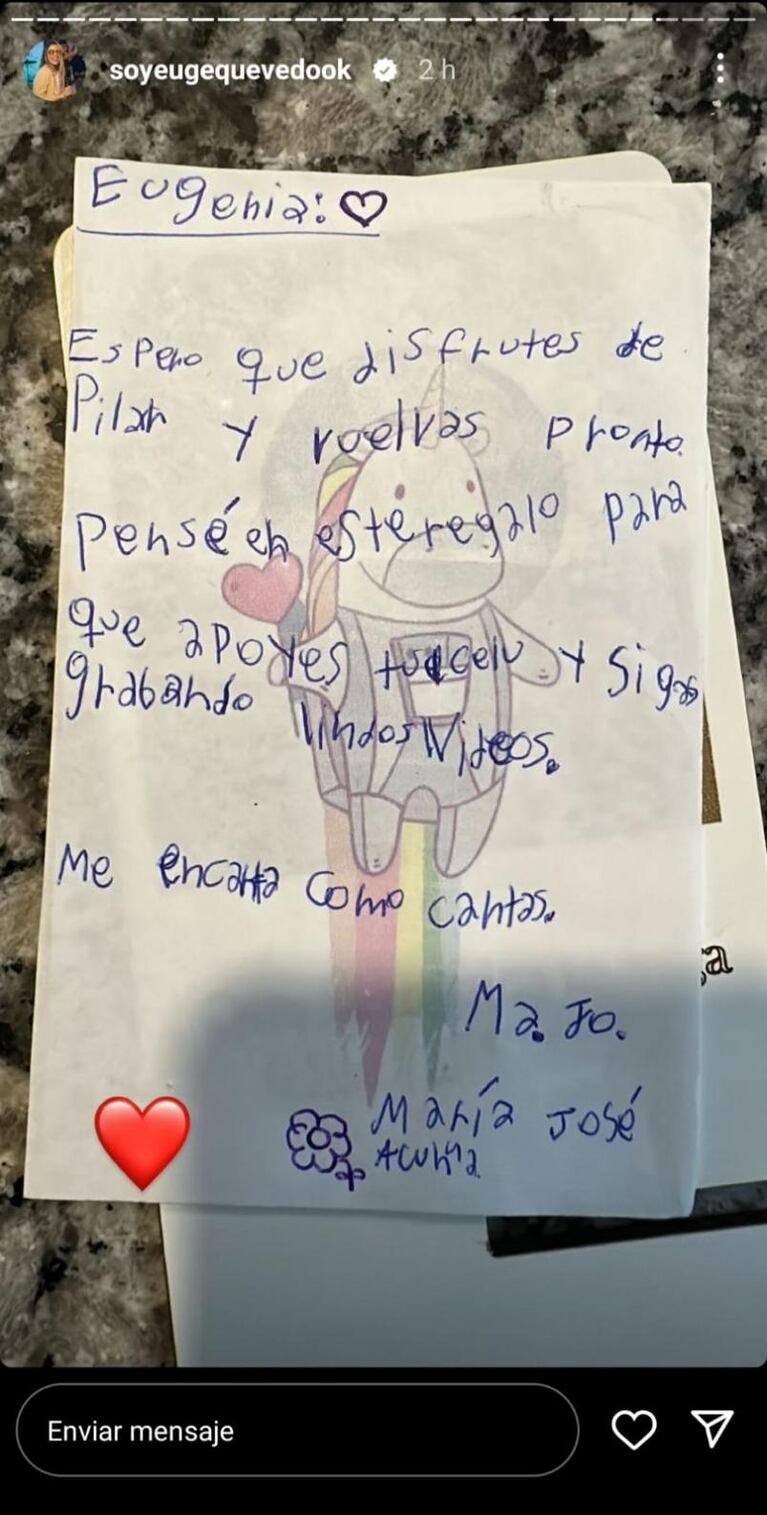 soyeugequevedook 2 h
Eugenia: ♡
Espero que disfrutes de
Pilar y vuelvas pronto.
Pensé en este regalo para
que apoyes tu celu y sigas
grabando lindos videos.
Me encanta como cantas.
Ma. Jo.
María José
Acuña
a
Enviar mensaje